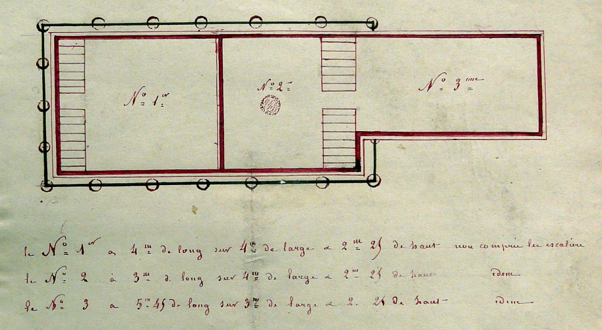 No 1er
No 2
No 3eme
le No 1er a 4m de long sur 4m de large & 2m 25 de haut non compris les escaliers
le No 2 a 3m d. long sur 4m de large & 2m 25 de haut idem
le No 3 a 5m 45 de long sur 3m de large & 2. 25 de haut idem